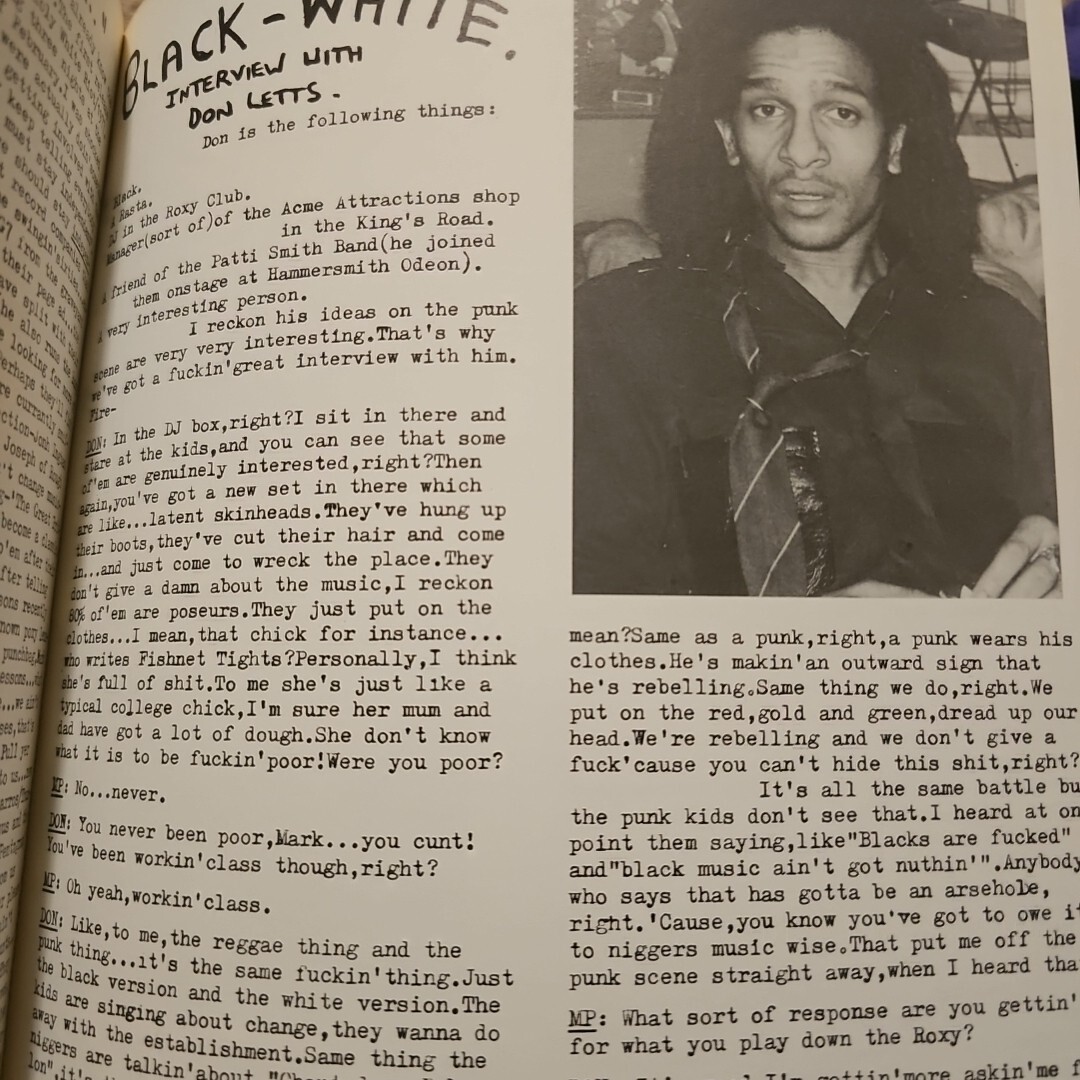 BLACK-WHITE.
INTERVIEW WITH
DON LETTS.
Don is the following things:
Black.
A Rasta.
DJ in the Roxy Club.
Manager(sort of)of the Acme Attractions shop
in the King's Road.
A friend of the Patti Smith Band(he joined
them onstage at Hammersmith Odeon).
A very interesting person.
I reckon his ideas on the punk
scene are very very interesting.That's why
we've got a fuckin'great interview with him.
Fire-
DON: In the DJ box,right?I sit in there and
stare at the kids,and you can see that some
of'em are genuinely interested,right?Then
again,you've got a new set in there which
are like...latent skinheads.They've hung up
their boots,they've cut their hair and come
in...and just come to wreck the place.They
don't give a damn about the music,I reckon
80% of'em are poseurs.They just put on the
clothes...I mean,that chick for instance...
who writes Fishnet Tights?Personally,I think
she's full of shit.To me she's just like a
typical college chick,I'm sure her mum and
dad have got a lot of dough.She don't know
what it is to be fuckin'poor!Were you poor?
MP: No...never.
DON: You never been poor,Mark...you cunt!
You've been workin'class though,right?
MP: Oh yeah,workin'class.
DON: Like,to me,the reggae thing and the
punk thing...it's the same fuckin'thing.Just
the black version and the white version.The
kids are singing about change,they wanna do
away with the establishment.Same thing the
niggers are talkin'about
lon",it's
mean?Same as a punk,right,a punk wears his
clothes.He's makin'an outward sign that
he's rebelling.Same thing we do,right.We
put on the red,gold and green,dread up our
head.We're rebelling and we don't give a
fuck'cause you can't hide this shit,right?
It's all the same battle bu
the punk kids don't see that.I heard at on
point them saying,like"Blacks are fucked"
and"black music ain't got nuthin'".Anybody
who says that has gotta be an arsehole,
right.'Cause,you know you've got to owe it
to niggers music wise.That put me off the
punk scene straight away,when I heard tha
MP: What sort of response are you gettin'
for what you play down the Roxy?
I'm gettin'more askin'me f